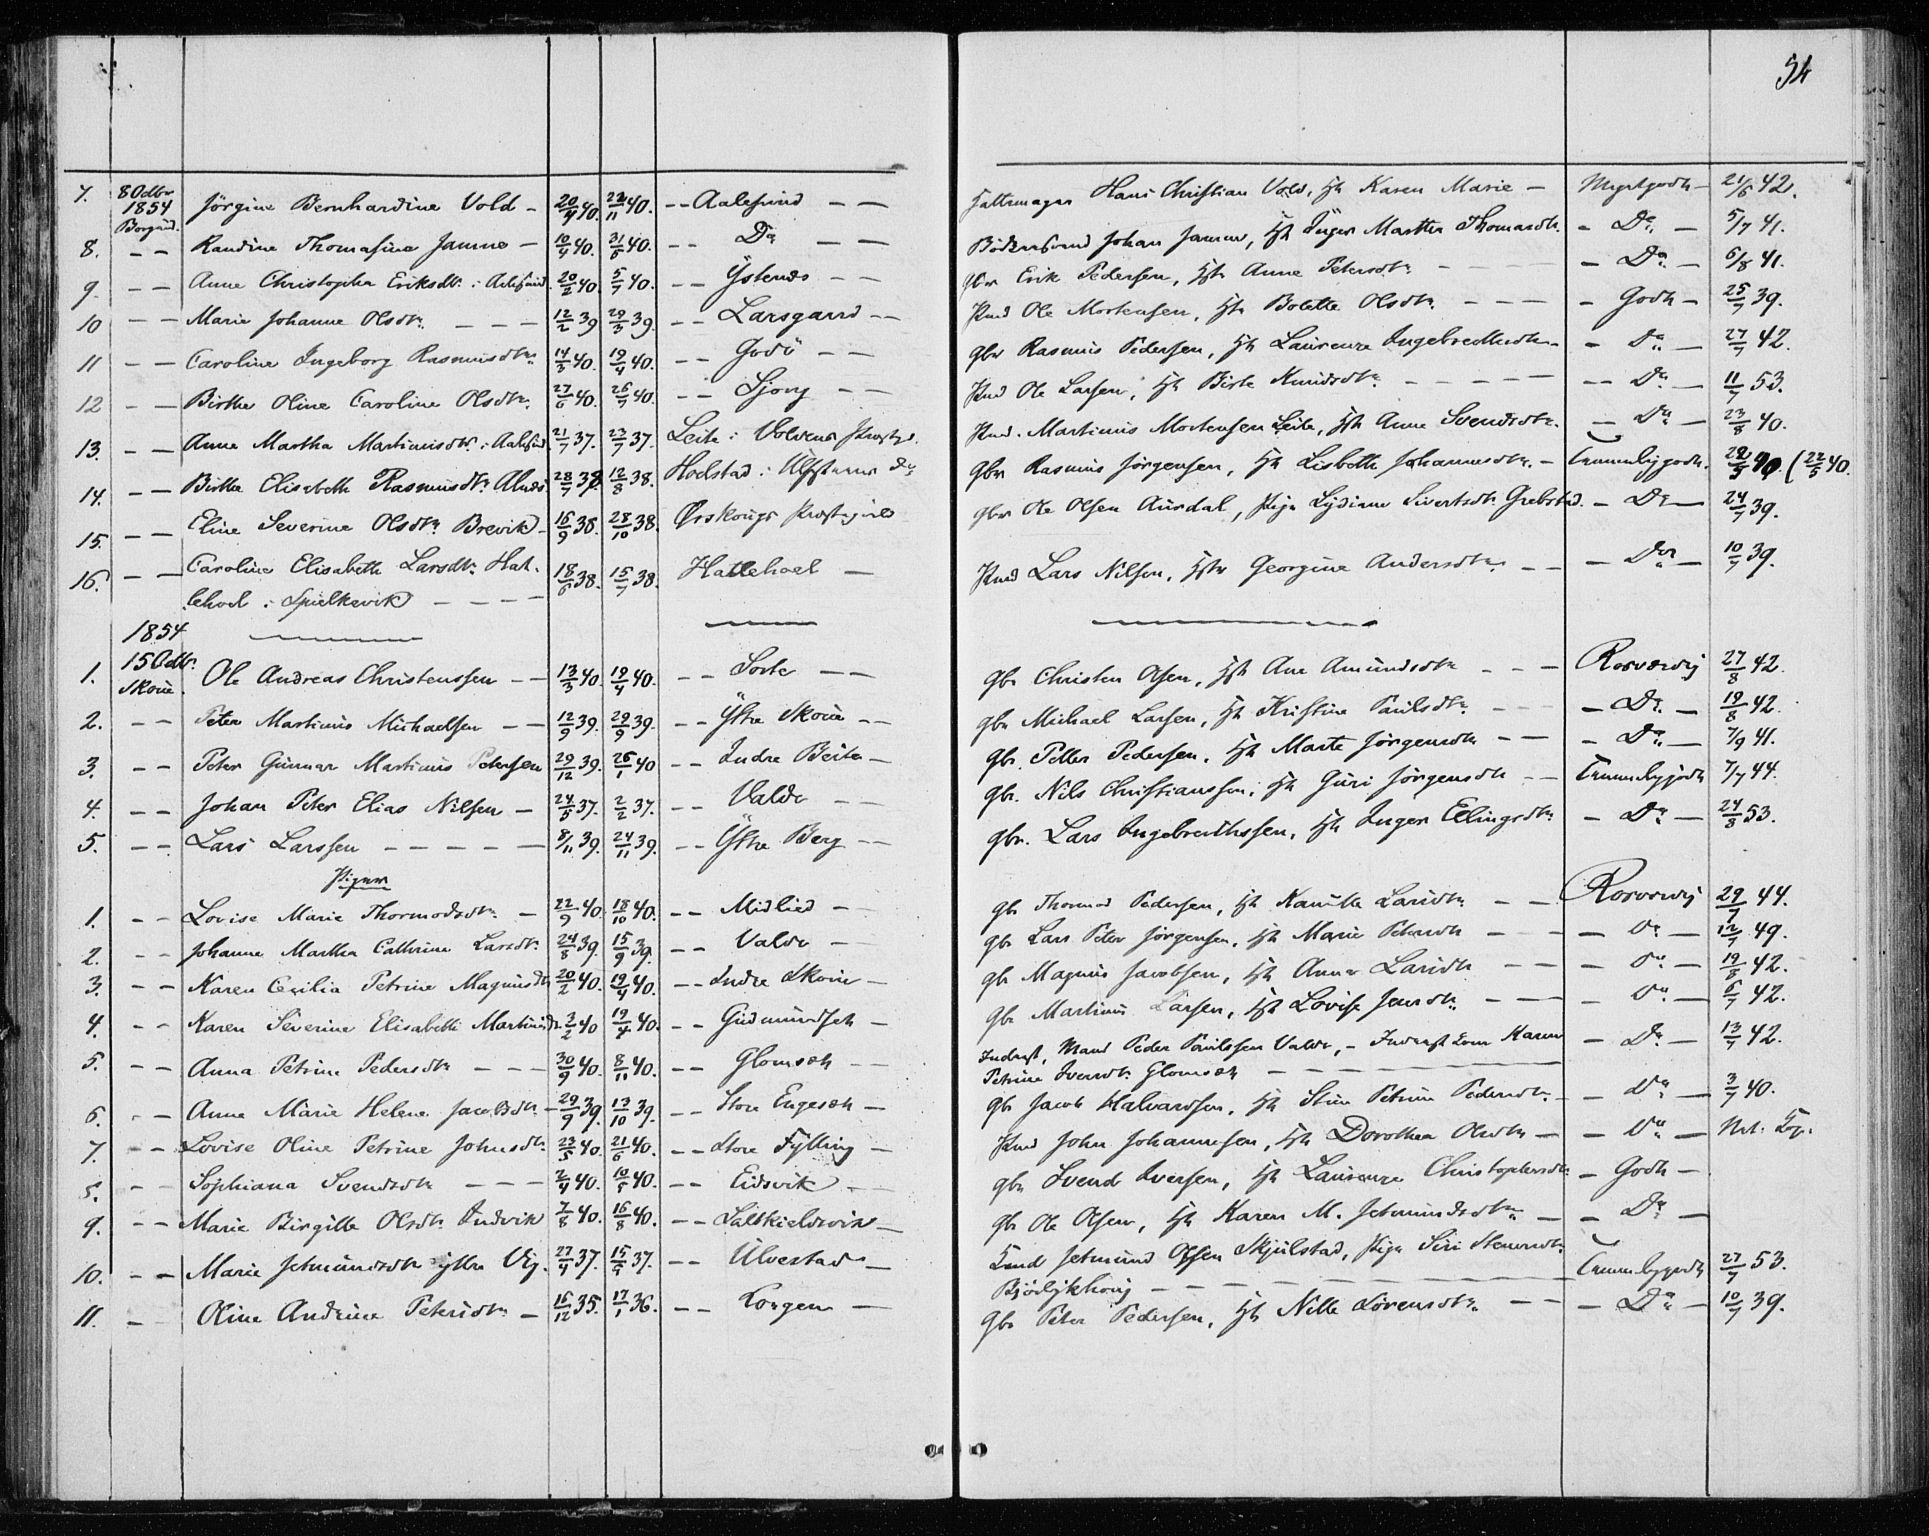 54
7. 8 Octbr 1854 Borgund. Jörgine Bernhardine Vold - 20/4 40. 22/11 40. -- Aalesund -- Hans Christian Vold, Hst Karen Marie - Mgtgodt - 21/6 42.
8. -- Randine Thomasine Jamne - 10/4 40. 31/5 40. -- Do -- Johan Jamne, Hst Inger Martha Thomasdtr. - Do - 5/7 41.
9. -- Anne Christopha Eriksdtr. i Aalesund. 20/2 40. 5/7 40. -- Ystenes -- Gbr Erik Pedersen, Hst Anne Petersdtr. - Do - 6/8 41.
10 -- Marie Johanne Olsdtr. --- 12/2 39 29/3 39. -- Larsgaard -- Hmd Ole Mortensen, Hst Bolette Olsdtr --- - Godt - 25/7 39.
11 -- Caroline Ingeborg Rasmusdtr. 14/3 40. 19/4 40. -- Godö -- Gbr Rasmus Pedersen, Hst Laurenze Ingebrethsdtr - - Do - 27/7 42.
12 -- Birthe Oline Caroline Olsdtr. 27/6 40. 26/7 40. -- Sjong -- Hmd Ole Larsen, Hst Birte Knudsdtr. ---- -- Do - 11/7 53.
13. -- Anne Martha Martinusdtr. i Aalesund. 21/7 37. 23/7 37. Leite i Voldens Præstgd. Hmd. Martinus Mortensen Leite, Hst Anne Svendsdtr. - Do - 23/8 40.
14. -- Birthe Elisabeth Rasmusdtr. Alnæs 28/7 38 12/8 38. Hodstad i Ulfsteens Do Gbr Rasmus Jörgensen, Hst Lisbeth Johannesdtr. - Temmeliggodt. (22/5 40.
15. -- Eline Severine Olsdtr. Brevik - 16/9 38. 28/10 38. Ørskougs Præstegield Gbr Ole Olsen Aurdal, Pige Lydianne Sivertsdtr. Grebstad. - Do - 24/7 39.
16. -- Caroline Elisabeth Larsdtr. Hat-
lehoel i Spielkevik ---- 18/6 38. 15/7 38. Hatlehoel - Hmd Lars Nilsen, Hst Georgine Andersdtr. -- - Do - 10/7 39.
1854
1. 15 Octbr. Skoue. Ole Andreas Christenssen -- 13/3 40. 19/4 40. -- Sorte -- Gbr Christen Olsen, Hst Ane Amundsdtr --- Rosværdig 27/8 42.
2. -- Peter Martinus Michaelsen -- 12/9 39. 29/9 39. -- Ystre Skoue -- Gbr Michael Larsen, Hst Kristine Paulsdtr. --- - Do. - 19/8 42.
3. -- Peter Gunnar Martinus Petersen 29/12 39. 26/1 40 -- Indre Beite - Gbr. Petter Pedersen, Hst Marte Jörgensdtr -- - Do - 7/9 41.
4. -- Johan Peter Elias Nilsen - 24/5 37. 2/2 37. -- Valde -- Gbr. Nils Christianssen, Hst Guri Jörgensdtr -- Temmeliggodt 7/7 44.
5. -- Lars Larssen ----- 8/11 39. 24/11 39. -- Ystre Berg -- Gbr. Lars Ingebrethssen, Hst Inger Ellingsdtr. - Do - 24/8 53.
Piger
1. -- Lovise Marie Thormodsdtr. - 22/9 40. 18/10 40. -- Midlied - Gbr Thormod Pedersen, Hst Kanutte Larsdtr -- Rosværdig 29/7 44.
2. -- Johanne Martha Cathrine Larsdtr. 24/8 39. 15/9 39. -- Valde - Gbr Lars Peter Jörgensen, Hst Marie Petersdtr -- - Do - 12/7 49.
3. -- Karen Cecilia Petrine Magnusdtr 20/2 40. 19/4 40. -- Indre Skoue - Gbr Magnus Jacobsen, Hst Anne Larsdtr -- - Do - 19/8 42.
4. -- Karen Severine Elisabeth Martinusdtr 3/2 40 19/4 40. -- Gudmundset - Gbr Martinus Larsen, Hst Lovise Jensdtr. --- - Do - 6/7 42.
5. -- Anna Petrine Pedersdtr --- 30/9 40. 8/11 40. -- Glomset -- Inderst, Mand Peder Paulssen Valde, - Inderst Kone Karen
Petrine Iversdtr. Glomset ---- - Do - 13/7 42.
6. -- Anne Marie Helene Jacobsdtr - 29/9 39. 13/10 39. -- Store Engeset - Gbr Jacob Halvardsen, Hst Stine Petrine Pedersdtr. - - Do - 3/7 40.
7. -- Lovise Oline Petrine Johnsdtr. 23/5 40. 21/6 40. -- Store Fylling - Hmd John Johannesen, Hst Dorothea Olsdtr - - Do -
8. -- Sophiana Svendsdtr --- 2/4 40. 10/5 40. -- Eidsvik -- Gbr Svend Iversen, Hst Laurenze Christophersdtr. - Godt -
9. -- Marie Birgitte Olsdtr. Indvik 7/8 40. 16/8 40. -- Gbr Ole Olsen, Hst Karen M. Jetmundsdtr. - - Do -
10. -- Marie Jetmundsdtr Ystre Vig. 27/4 37. 15/4 37. -- Ulvestad - Jetmund Olsen Skjulstad, Pige Siri
---- Temmeliggodt 27/7 53.
11. -- Oline Andrine Petersdtr - 16/12 35. 17/1 36. -- Longen - Gbr Peter Pedersen, Hst Nille Lorensdtr. -- - Do - 10/7 39.